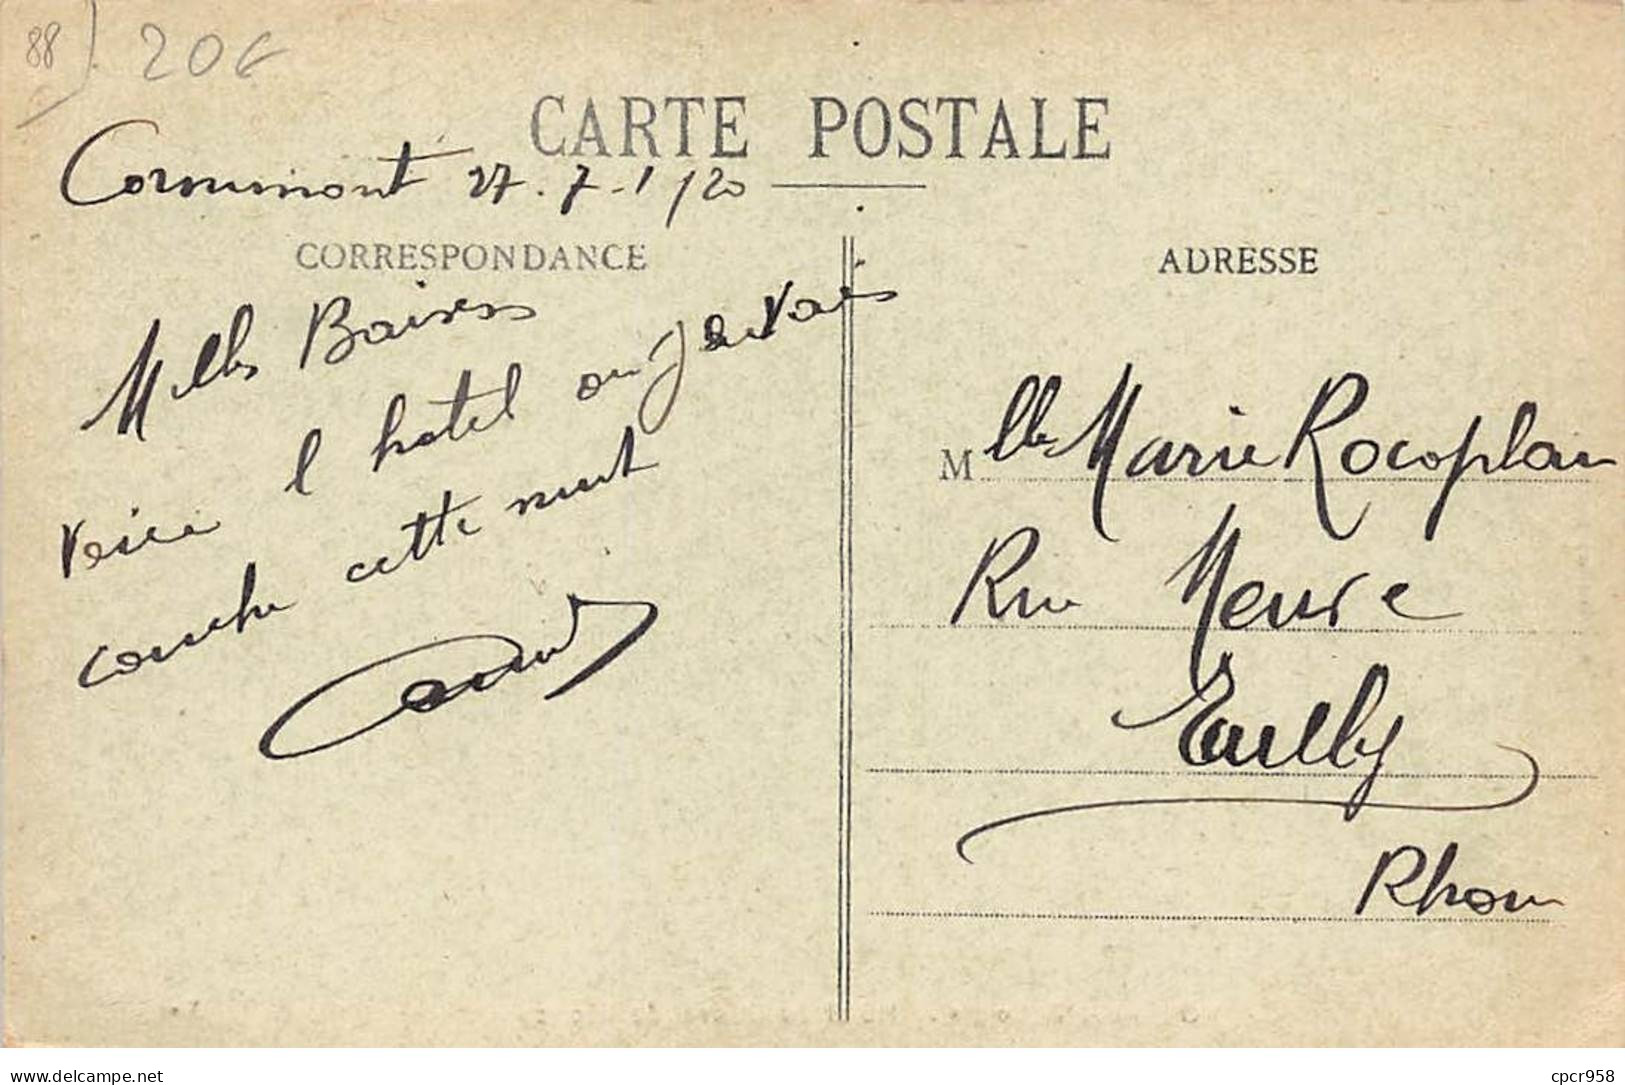 88
20€
CARTE POSTALE
Cornimont 27.7-1920
CORRESPONDANCE
ADRESSE
Mille Baisers
Voici l hotel ou je vais
couche cette nuit
Mlle Marie Rocoplan
Rue Neuve
Eully
Rhone
cpcr958